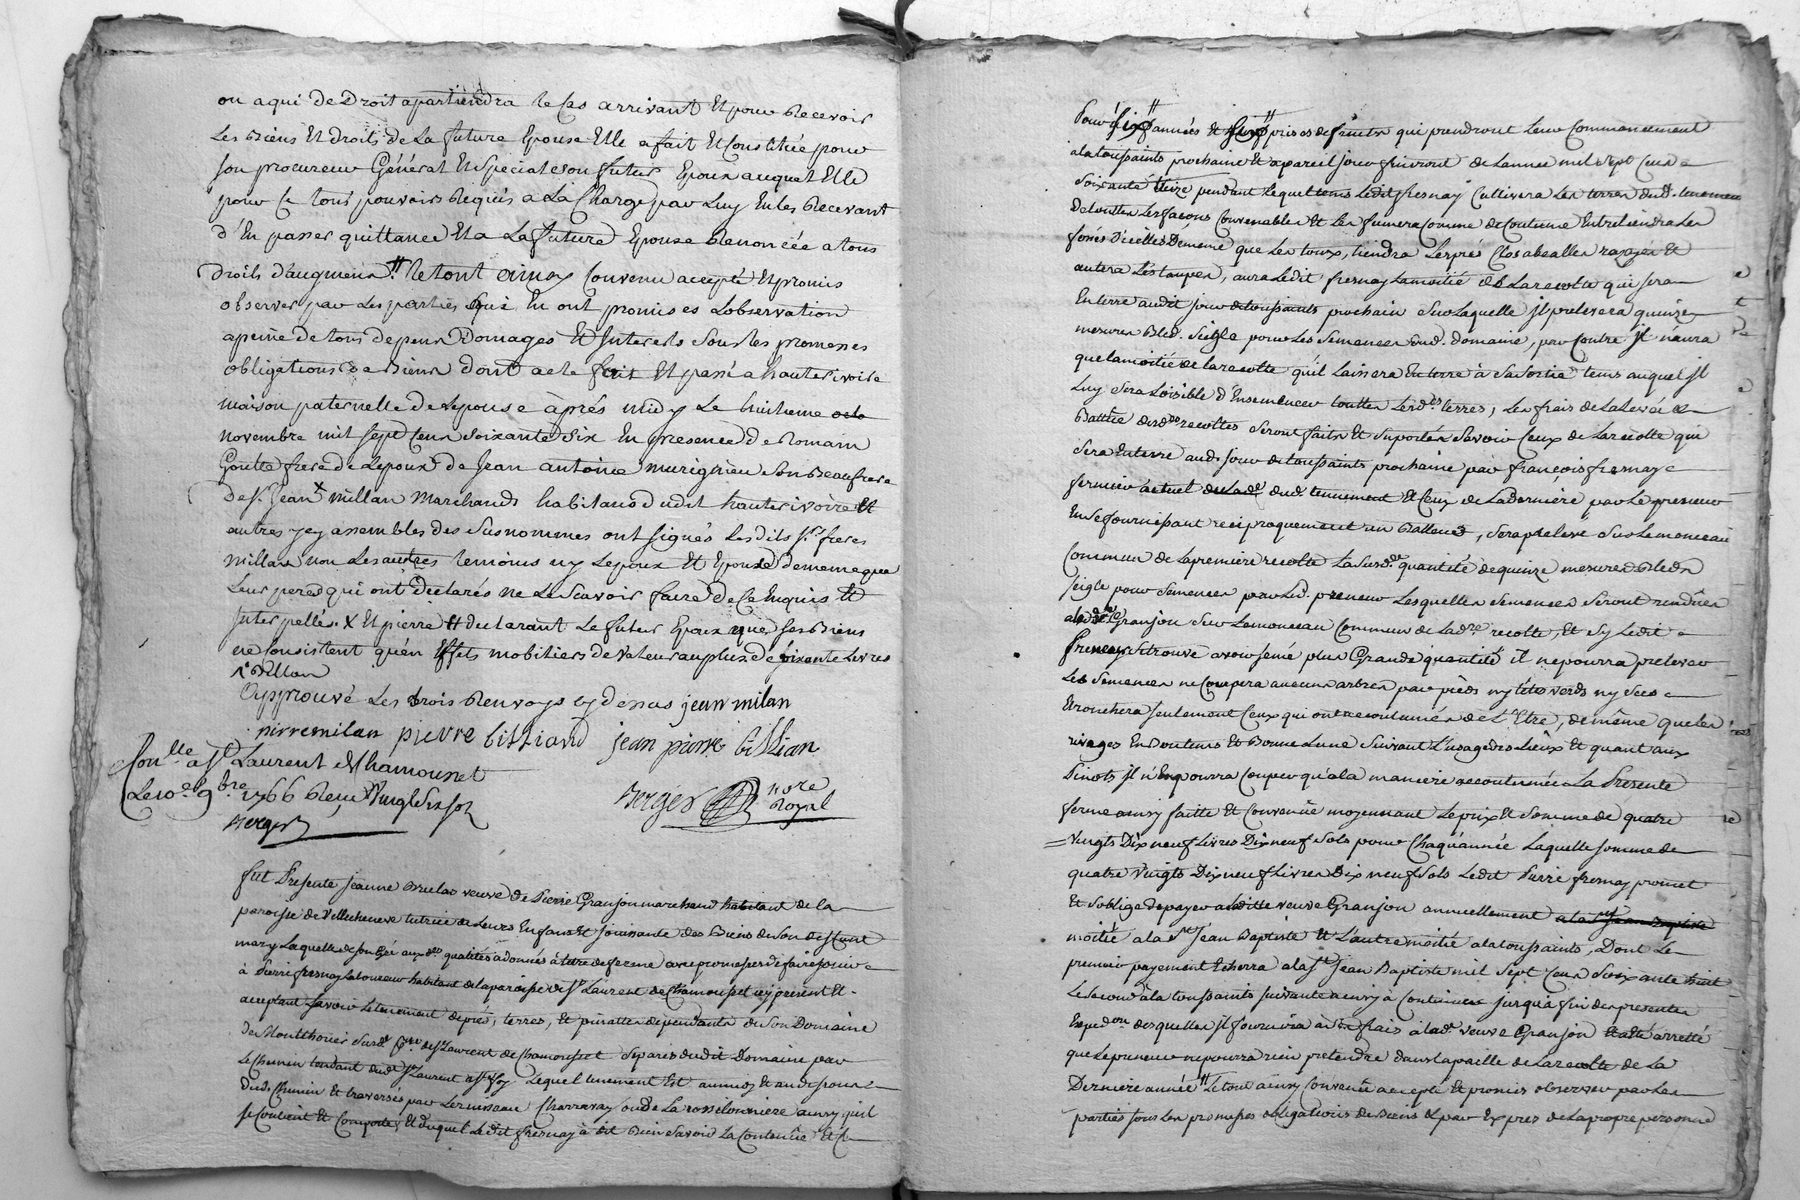 ou aqui de Droit apartiendra le Cas arrivant Et pour Recevoir
Les Biens Et droits de La future Epouse Elle a fait Et Constitué pour
son procureur Général Et Special son futur Epoux auquel Elle
pour Ce tous pouvoirs Requis a La Charge par Luy En les Recevant
d'En passer quittance Et a La future Epouse Renoncée a tous
droits d'augment # Le tout ainsy Convenu accepté Et promis
observer par Les parties qui En ont promis Lobservation
apeine de tous depens Domages Et Interets sous les promesses
obligations de Biens dont acte fait Et passé a hauterivoire
maison paternelle de Lepouse àprés midy Le huitieme
novembre mil sept Cens soixante six En presence de Romain
Goutte frere de Lepoux de Jean antoine murigneu son Beaufrere
de sr. Jean x millan Marchands habitans dudit hauterivoire Et
autres y assembles des susnommes ont signés Lesdits srs. freres
millan non Les autres temoins ny Lepoux Et Epouse dememe que
Leur pere qui ont déclarés ne Le Scavoir faire de Ce Enquis Et
Interpellés. X Et pierre # declarant Le futur Epoux que ses Biens
ne Consistent qu'en Effets mobiliers de valeur au plus de soixante Livres
Approuvé Les trois Renvoys cy dessus jean milan
pirre milan pierre billiand jean pierre billian
Conlle. a St Laurent de Chamousset
Le 10e 9bre 1766 Reçu Vingt six sols
Berger
Berger nore Royal
fut Presente Jeanne Brulas veuve de Pierre Granjon marchand habitant de la
paroisse de Villecheneve tutrice de Leurs Enfans Et jouissante des Biens de son deffunt
mary Laquelle de son gré auxdes. qualités a donnés à titre de ferme avec promesses de faire jouir
à Pierre fresnay Laboureur habitant de la paroisse de St Laurent de Chamousset icy present Et
acceptant Savoir Le tenement de prés, terres, Et pinattes dependants de son Domaine
de Montthorier Surdt. psse. de St Laurent de Chamousset separés dudit Domaine par
Le Chemin tendant dudt. St Laurent a St foy Lequel tenement Est
dud. Chemin Et traversés par Le ruisseau Charravay ou de La rossilonniere ainsy quil
se Contient Et Comporte, Et duquel Ledit fresnay à dit Bien Savoir La Contenüe Et
Pour six années Et six prises de fruits qui prendront Leur Commencement
ala toussaints prochaine Et a pareil jour finiront de Lannée mil sept Cens
soixante treize pendant Lequel tems Ledit fresnay Cultivera Les terres dud. tenement
de touttes Les façons Convenables Et Les fumera Comme de Coutume Entretiendra Les
fossés D'icelles De même que Les tours, tiendra Les prés Clos abealler Et
autera Les taupes, aura Ledit fresnay La moitié de La recolte qui sera
En terre audit jour de toussaints prochain sur Laquelle jl prelevera quinze
mesures Bled. seigle pour Les semences dud. domaine, par Contre jl n'aura
que la moitié de la recolte qu'il Laissera En terre à sa sortie tems auquel jl
Luy sera Loisible d'Ensemencer touttes lesdes terres, Les frais de La Levée Et
Battüe desdes recoltes seront faits Et suportés Savoir Ceux de La recolte qui
sera En terre aud. jour de toussaints prochaine par françois fresnay
fermier actuel dud. tennement Et Ceux de La derniere par Le preneur
En se fournissant reciproquement un Batteur, sera prelevé sur Le monceau
Commun de La premiere recolte La susde. quantité de quinze mesures Bleds
seigle pour semences par Led. preneur Lesquelles semences seront rendües
Granjon sur Le monceau Commun de Lade. recolte, Et sy Ledit
fresnay se trouve avoir semé plus Grande quantité il ne pourra prelever
Les semences ne Coupera aucuns arbres par pieds ny têtes verds ny secs
Etronchera seulement Ceux qui ont accoutumés de L'Etre, de même que Les
rivages En Bouteurs Et Bonne Lune suivant L'usage des Lieux Et quant aux
Pinots jl n'En pourra Couper qu'a la maniere accoutumée La Presente
ferme ainsy faitte Et Convenüe moyennant Le prix Et somme de quatre
vingts Dix neuf Livres Dix neuf sols pour Chaqu'année Laquelle somme de
quatre Vingts Dix neuf Livres Dix neuf sols Ledit Pierre fresnay promet
Et soblige de payer a Laditte veuve Granjon annuellement a la st Jean Baptiste
moitié a la st Jean Baptiste Et L'autre moitié a la toussaints, Dont Le
premier payement Echerra a la st Jean Baptiste mil sept Cens soixante huit
Le second à la toussaints suivante ainsy à Continuer jusqu'a fin des presentes
Expedon. desquelles jl fournira à ses frais à lade. veuve Granjon Et à Eté arretté
que Le preneur ne pourra rien pretendre dans la paille de La recolte de La
Derniere année # Le tout ainsy Convenu accepté Et promis observer par Les
parties sous Les promesses obligations de Biens Et par Exprès de La propre personne